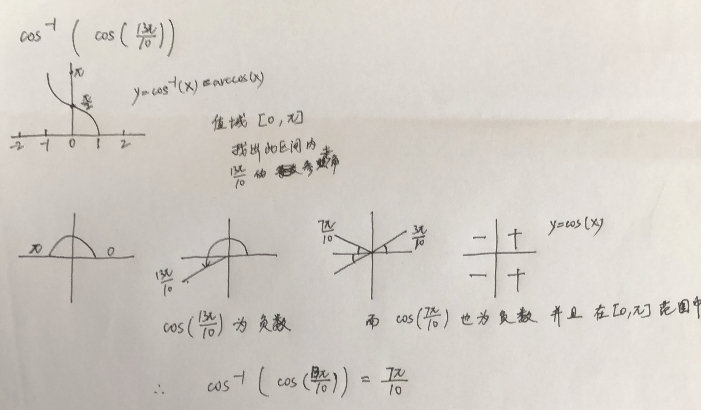 cos⁻¹ ( cos(13π/10) )
π
π/2
y=cos⁻¹(x) = arccos(x)
-2 -1 0 1 2
值域 [0,π]
找出此区间内
13π/10 的 参考角
π 0
13π/10
7π/10 3π/10
− +
− +
y=cos(x)
cos(13π/10) 为负数
而 cos(7π/10) 也为负数 并且 在[0,π] 范围中
∴ cos⁻¹ ( cos(13π/10) ) = 7π/10